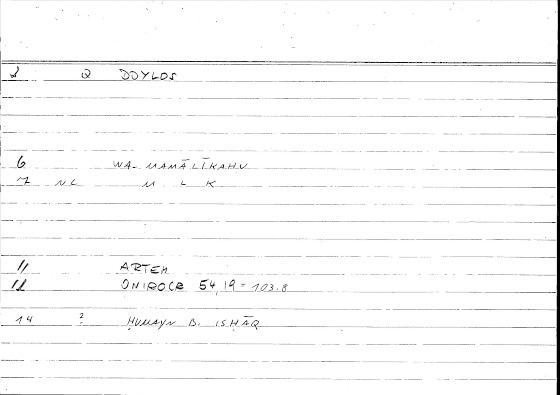 2 Q DOYLOS
6 WA-MAMĀLĪKAHU
7 NL M L K
11 ARTEM
12 ONIROCR 54,19 = 103.8
14 ? ḤUNAYN B. ISḤĀQ